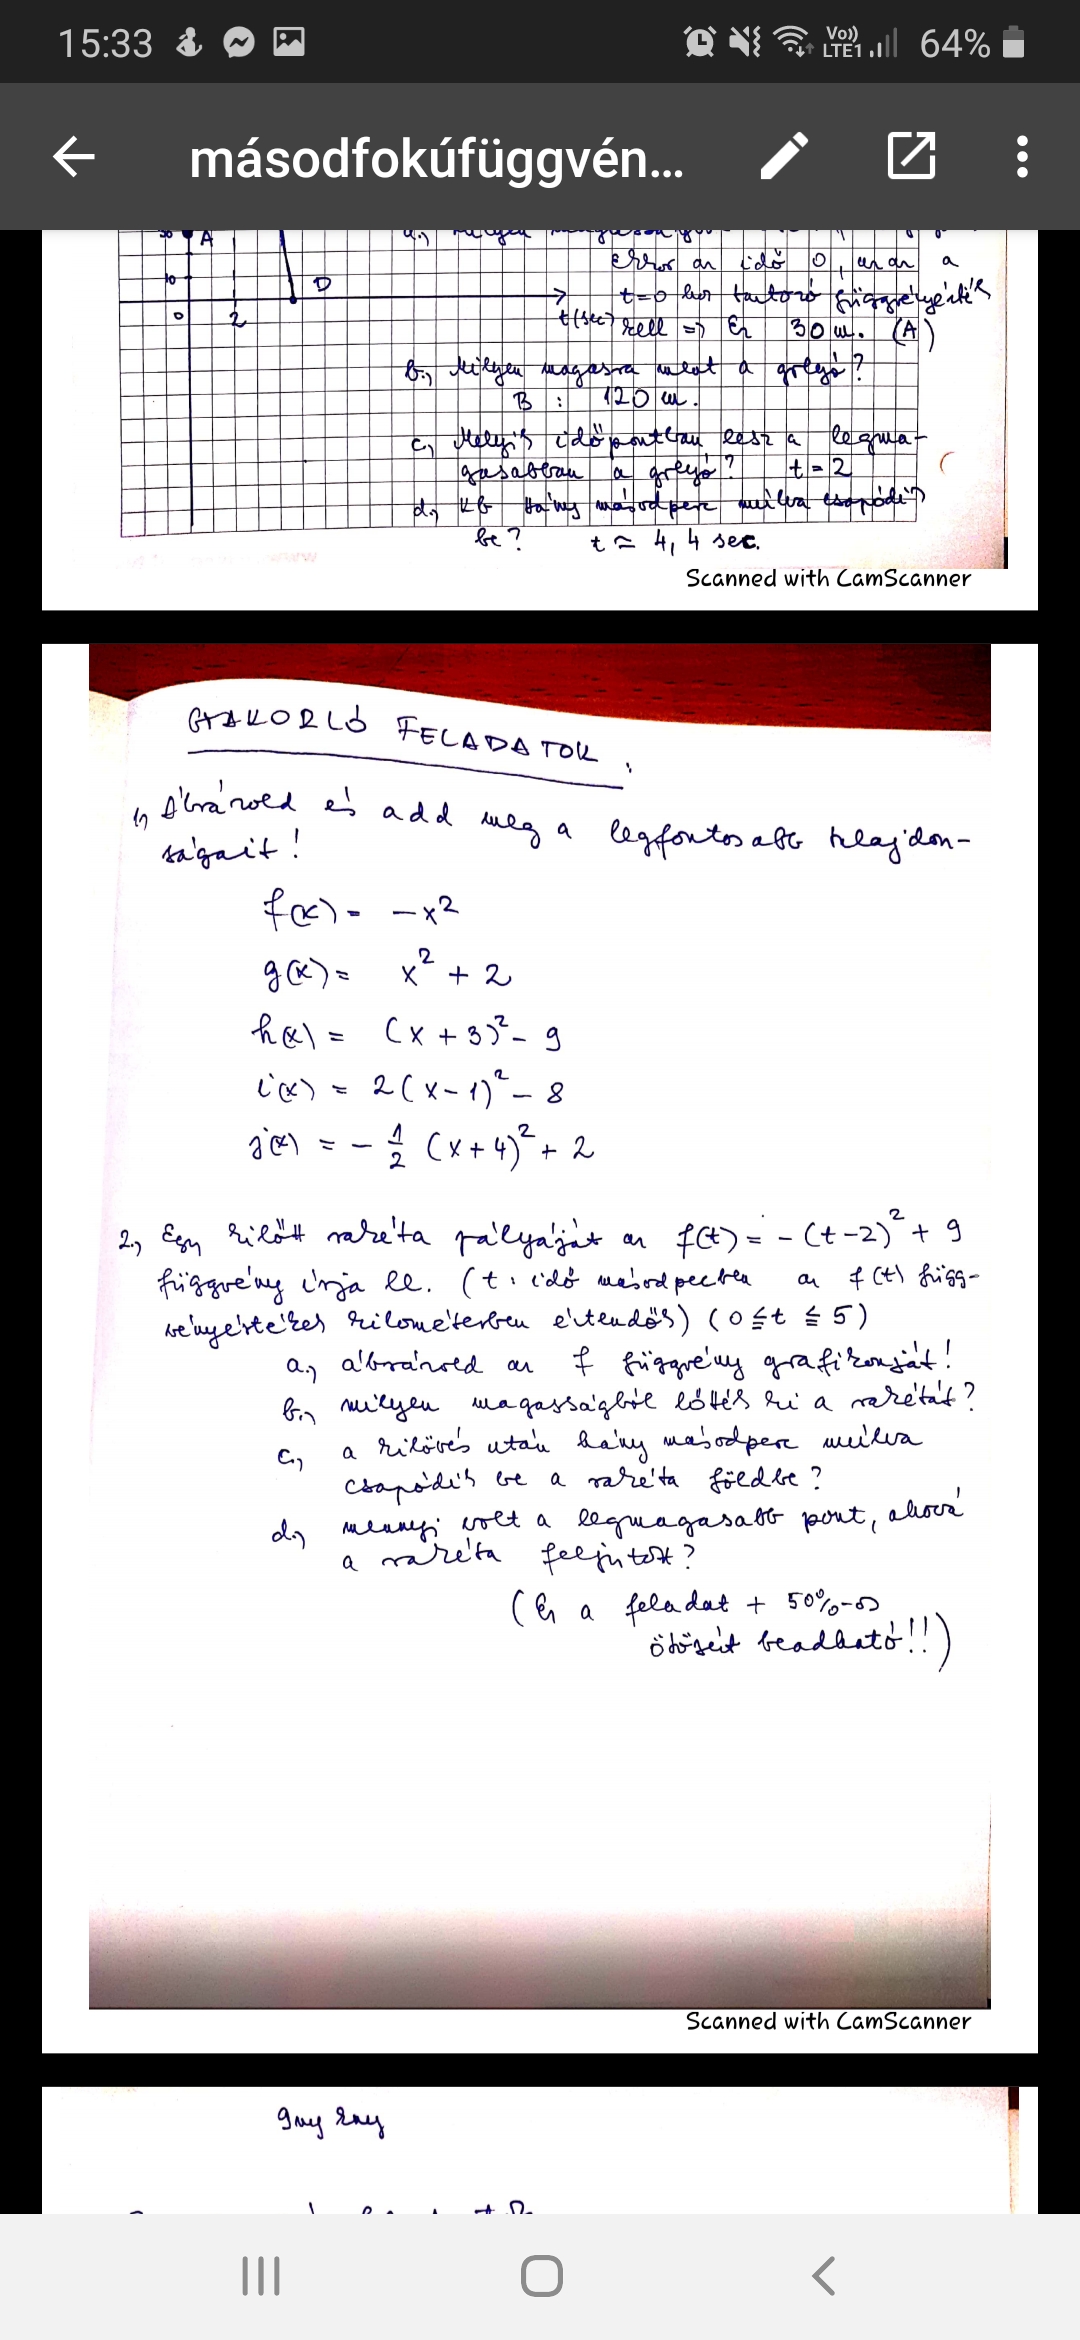 15:33 Vo)) LTE1 64%
másodfokúfüggvén...
30 A
error az idő 0, azaz a
10 D t=0 hoz tartozó függvényérték
0 2 t(sec) kell => Ez 30 m. (A)
b., Milyen magasra ment a golyó?
B : 120 m.
c., Melyik időpontban lesz a legma-
gasabban a golyó? t = 2
d., kb hány másodperc múlva csapódik
be? t ≈ 4,4 sec.
Scanned with CamScanner
GYAKORLÓ FELADATOK.
1, Ábrázold és add meg a legfontosabb tulajdon-
ságait!
f(x) = -x²
g(x) = x² + 2
h(x) = (x + 3)² - 9
i(x) = 2(x-1)² - 8
j(x) = - 1/2 (x+4)² + 2
2., Egy kilőtt rakéta pályáját az f(t) = -(t-2)² + 9
függvény írja le. (t: idő másodpercben az f(t) függ-
vényértékek kilométerben értendők) (0 ≦ t ≦ 5)
a., ábrázold az f függvény grafikonját!
b., milyen magasságból lőtték ki a rakétát?
c., a kilövés után hány másodperc múlva
csapódik be a rakéta földbe?
d., mennyi volt a legmagasabb pont, ahová
a rakéta feljutott?
(Ez a feladat + 50%-os
ötösért beadható!!)
Scanned with CamScanner